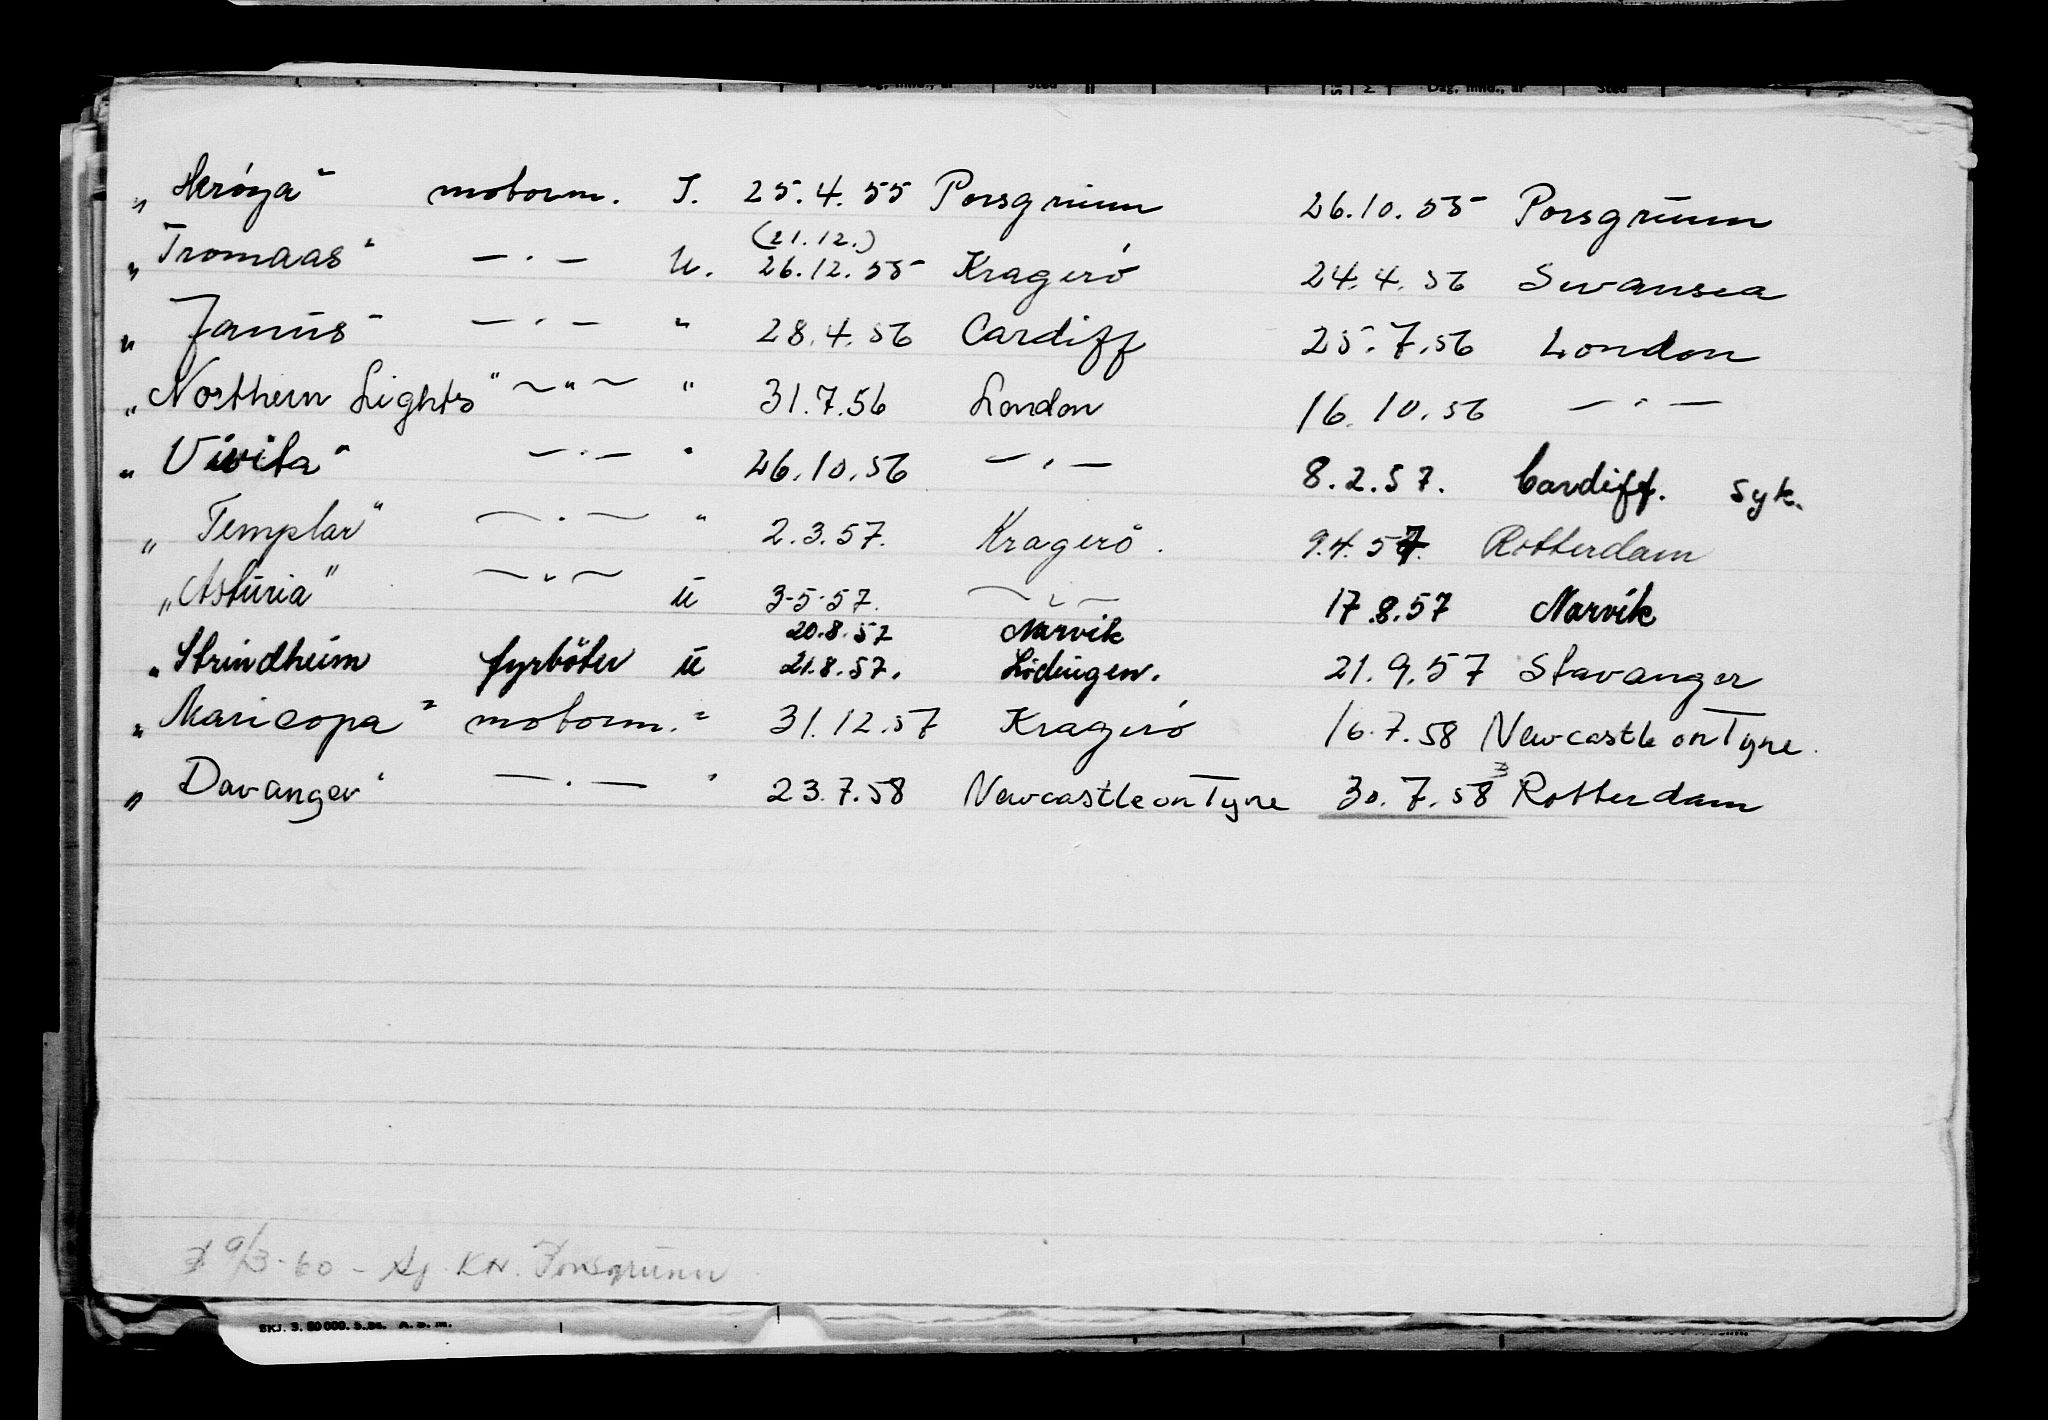 „Herøya“ motorm. I. 25.4.55 Porsgrunn 26.10.55 Porsgrunn
(21.12.)
„Tromaas“ — · — U. 26.12.55 Kragerø 24.4.56 Swansea
„Janus“ — · — " 28.4.56 Cardiff 25.7.56 London
„Northern Lights“ — " — " 31.7.56 London 16.10.56 — " —
„Vivita“ — · — " 26.10.56 — · — 8.2.57. Cardiff. Syk.
„Templar“ — · — " 2.3.57. Kragerö. 9.4.57. Rotterdam
„Asturia“ — " — U 3-5-57. — " — 17.8.57 Narvik
20.8.57 Narvik
„Strindheim fyrböter U 21.8.57. Lödingen. 21.9.57 Stavanger
„Maricopa“ motorm. " 31.12.57 Kragerø 16.7.58 Newcastle on Tyne.
„Davanger“ — · — " 23.7.58 Newcastle on Tyne 30.7.58 Rotterdam
9/3-60 - Porsgrunn
SKJ. 3. 80 000. 5.54. A. s. m.